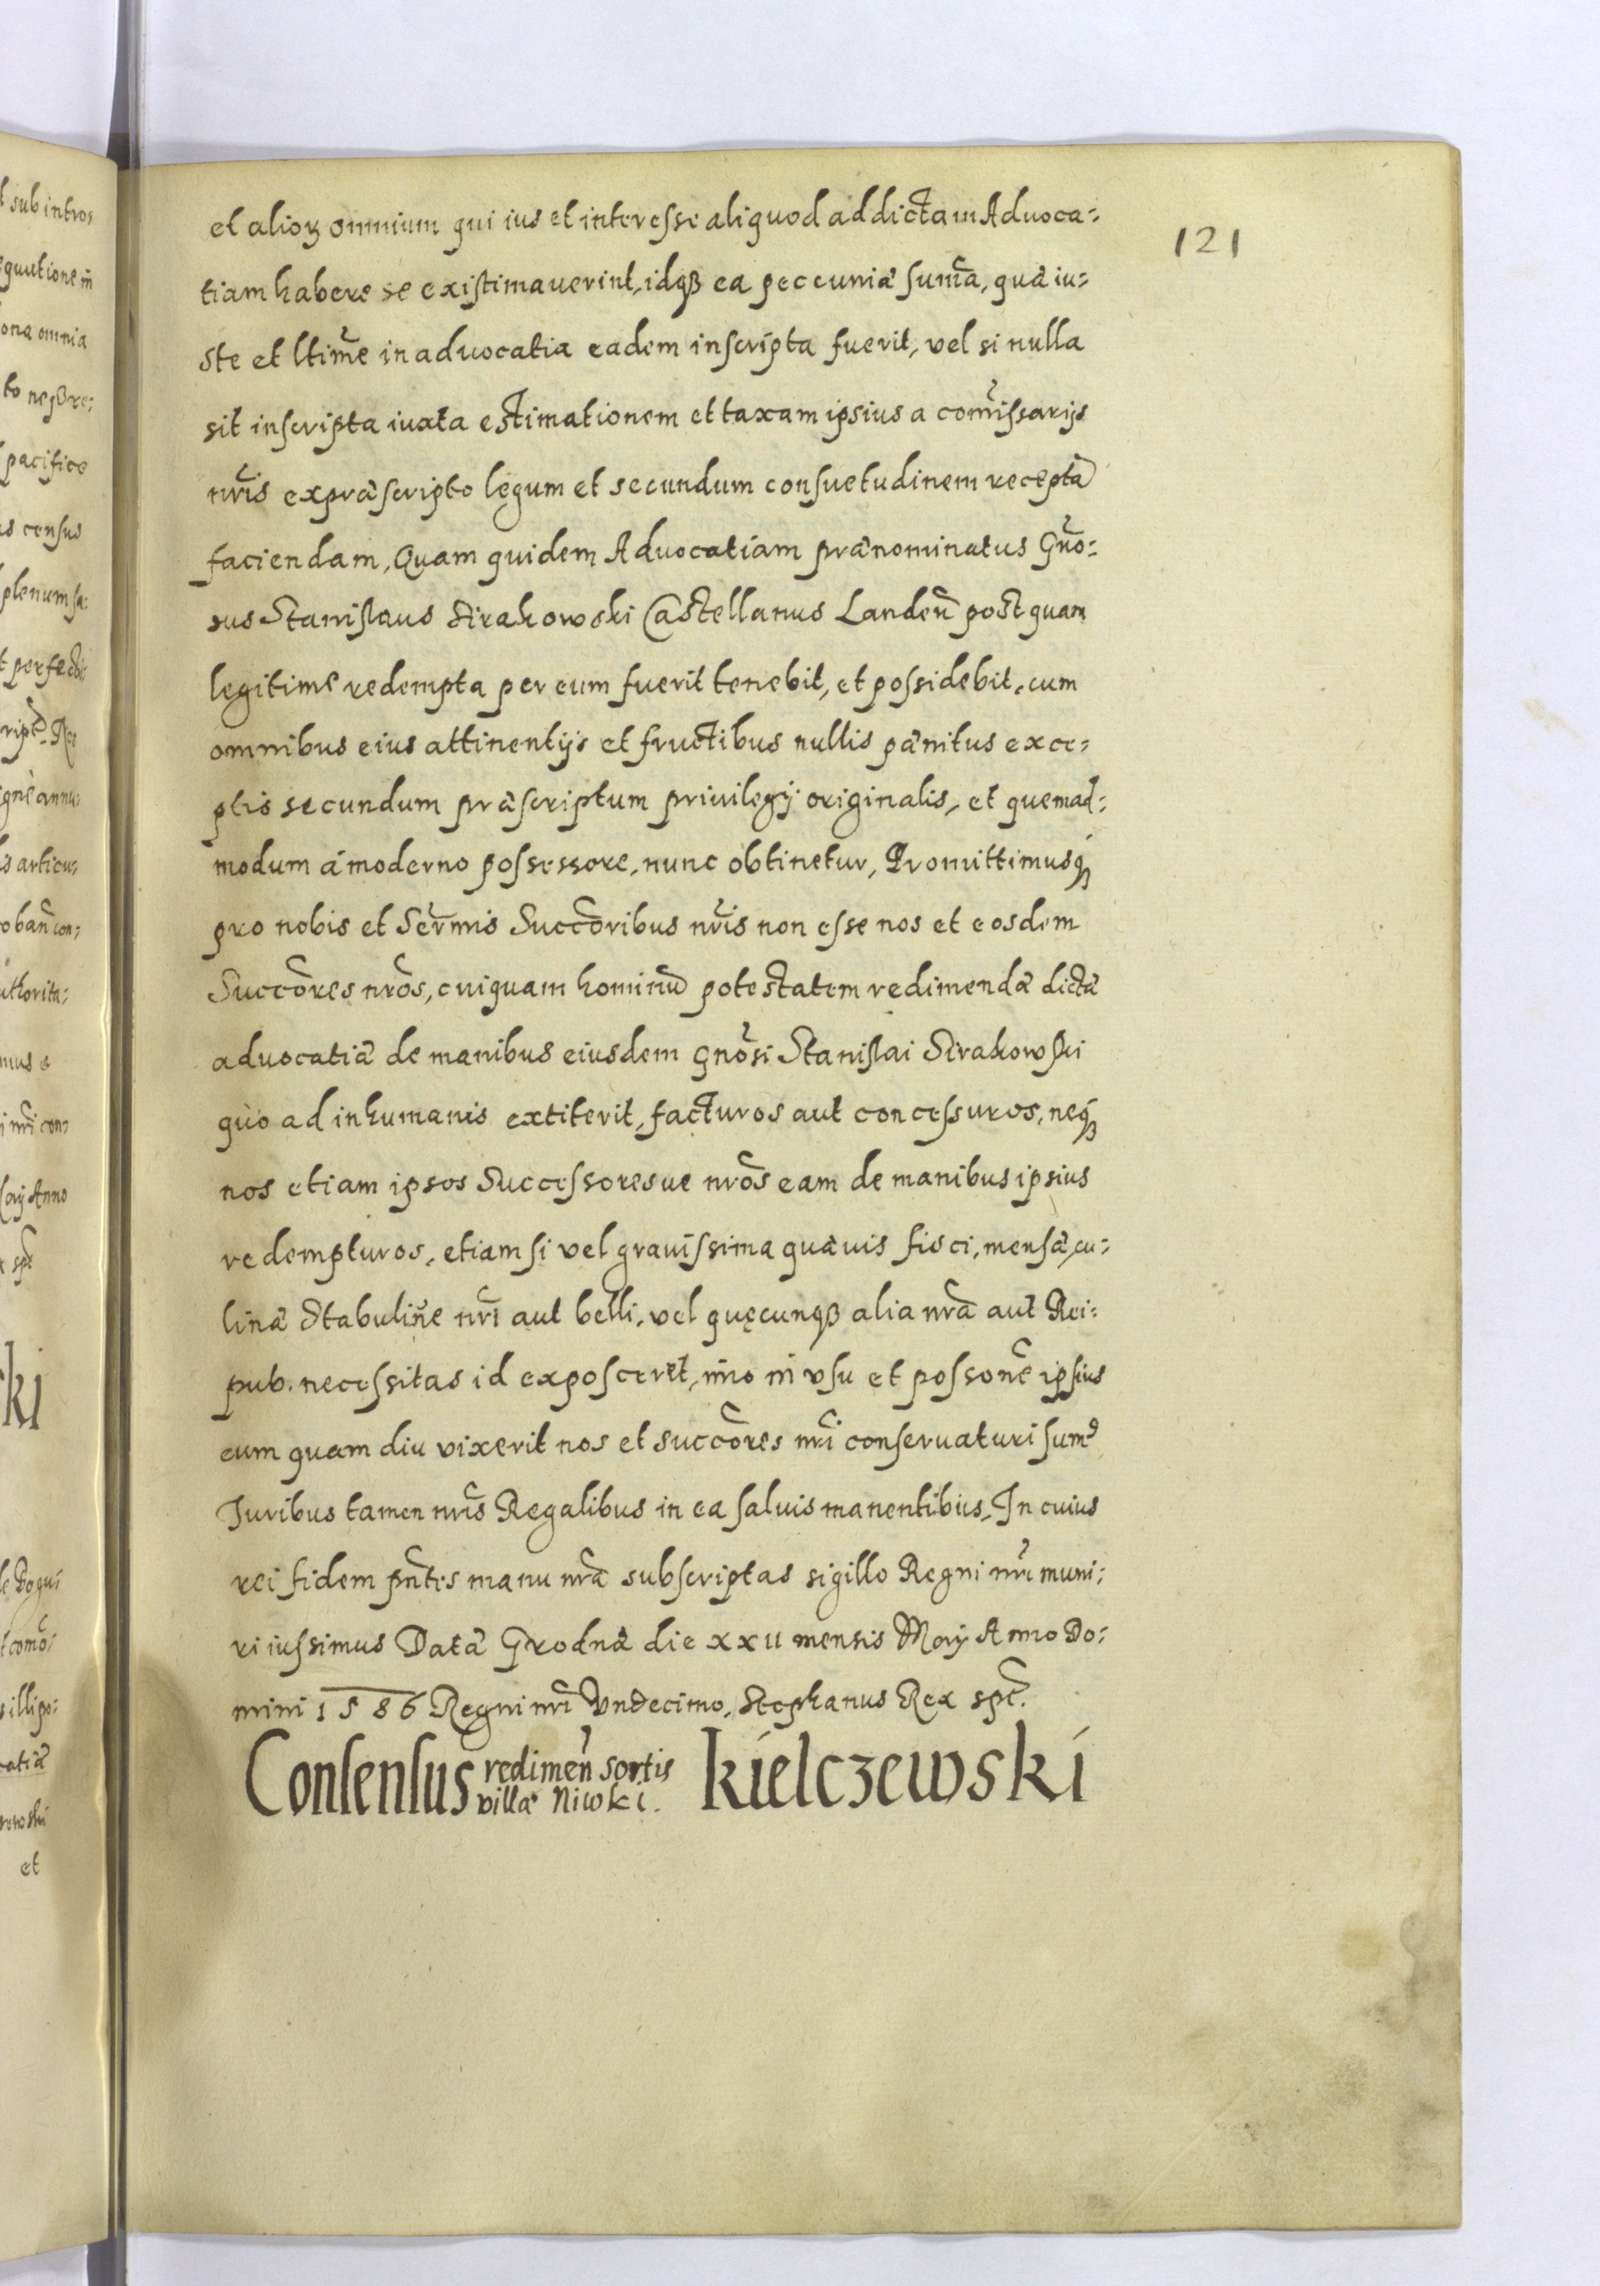 121
et alioꝝ omnium qui ius et interesse aliquod ad dictam Aduoca:
tiam habere se existimauerint, idqꝫ ea peccuniæ sum̃a, qua iu:
ste et ltim̃e in aduocatia eadem inscripta fuerit, vel si nulla
sit inscripta iuxta estimationem et taxam ipsius a com̃issarijs
nr̃is ex præscripto legum et secundum consuetudinem receptã
faciendam, Quam quidem Aduocatiam prænominatus Gño:
sus Stanislaus Sirakowski Castellanus Landeñ postquam
legitime redempta per eum fuerit tenebit, et possidebit, cum
omnibus eius attinentijs et fructibus nullis pænitus exce:
ptis secundum præscriptum priuilegij originalis, et quemad:
modum á moderno possessore, nunc obtinetur, Promittimusqꝫ
pro nobis et Ser̃mis Succõribus nr̃is non esse nos et eosdem
Succõres nr̃os, cuiquam hominũ potestatem redimendæ dictæ
aduocatiæ de manibus eiusdem Gnõsi Stanislai Sirakowski
quo ad in humanis extiterit, facturos aut concessuros, neqꝫ
nos etiam ipsos Successoresue nr̃os eam de manibus ipsius
redempturos, etiam si vel grauissima quæuis fisci, mensæ, cu:
linæ Stabuliñe nr̃i aut belli, vel quęcunqꝫ alia nr̃a aut Rei:
pub. necessitas id exposceret, im̃o in vsu et possonẽ ipsius
eum quam diu vixerit nos et succõres nr̃i conseruaturi sumꝰ
Juribus tamen nr̃is Regalibus in ea saluis manentibus, In cuius
rei fidem pñtes manu nr̃a subscriptas sigillo Regni nr̃i muni:
ri iussimus Datæ Grodnæ die xxii mensis Maij Anno Do:
mini 1586 Regni nr̃i Vndecimo, Stephanus Rex spt̃.
Consensus redimeñ sortis villæ Niwki. Kielczewski